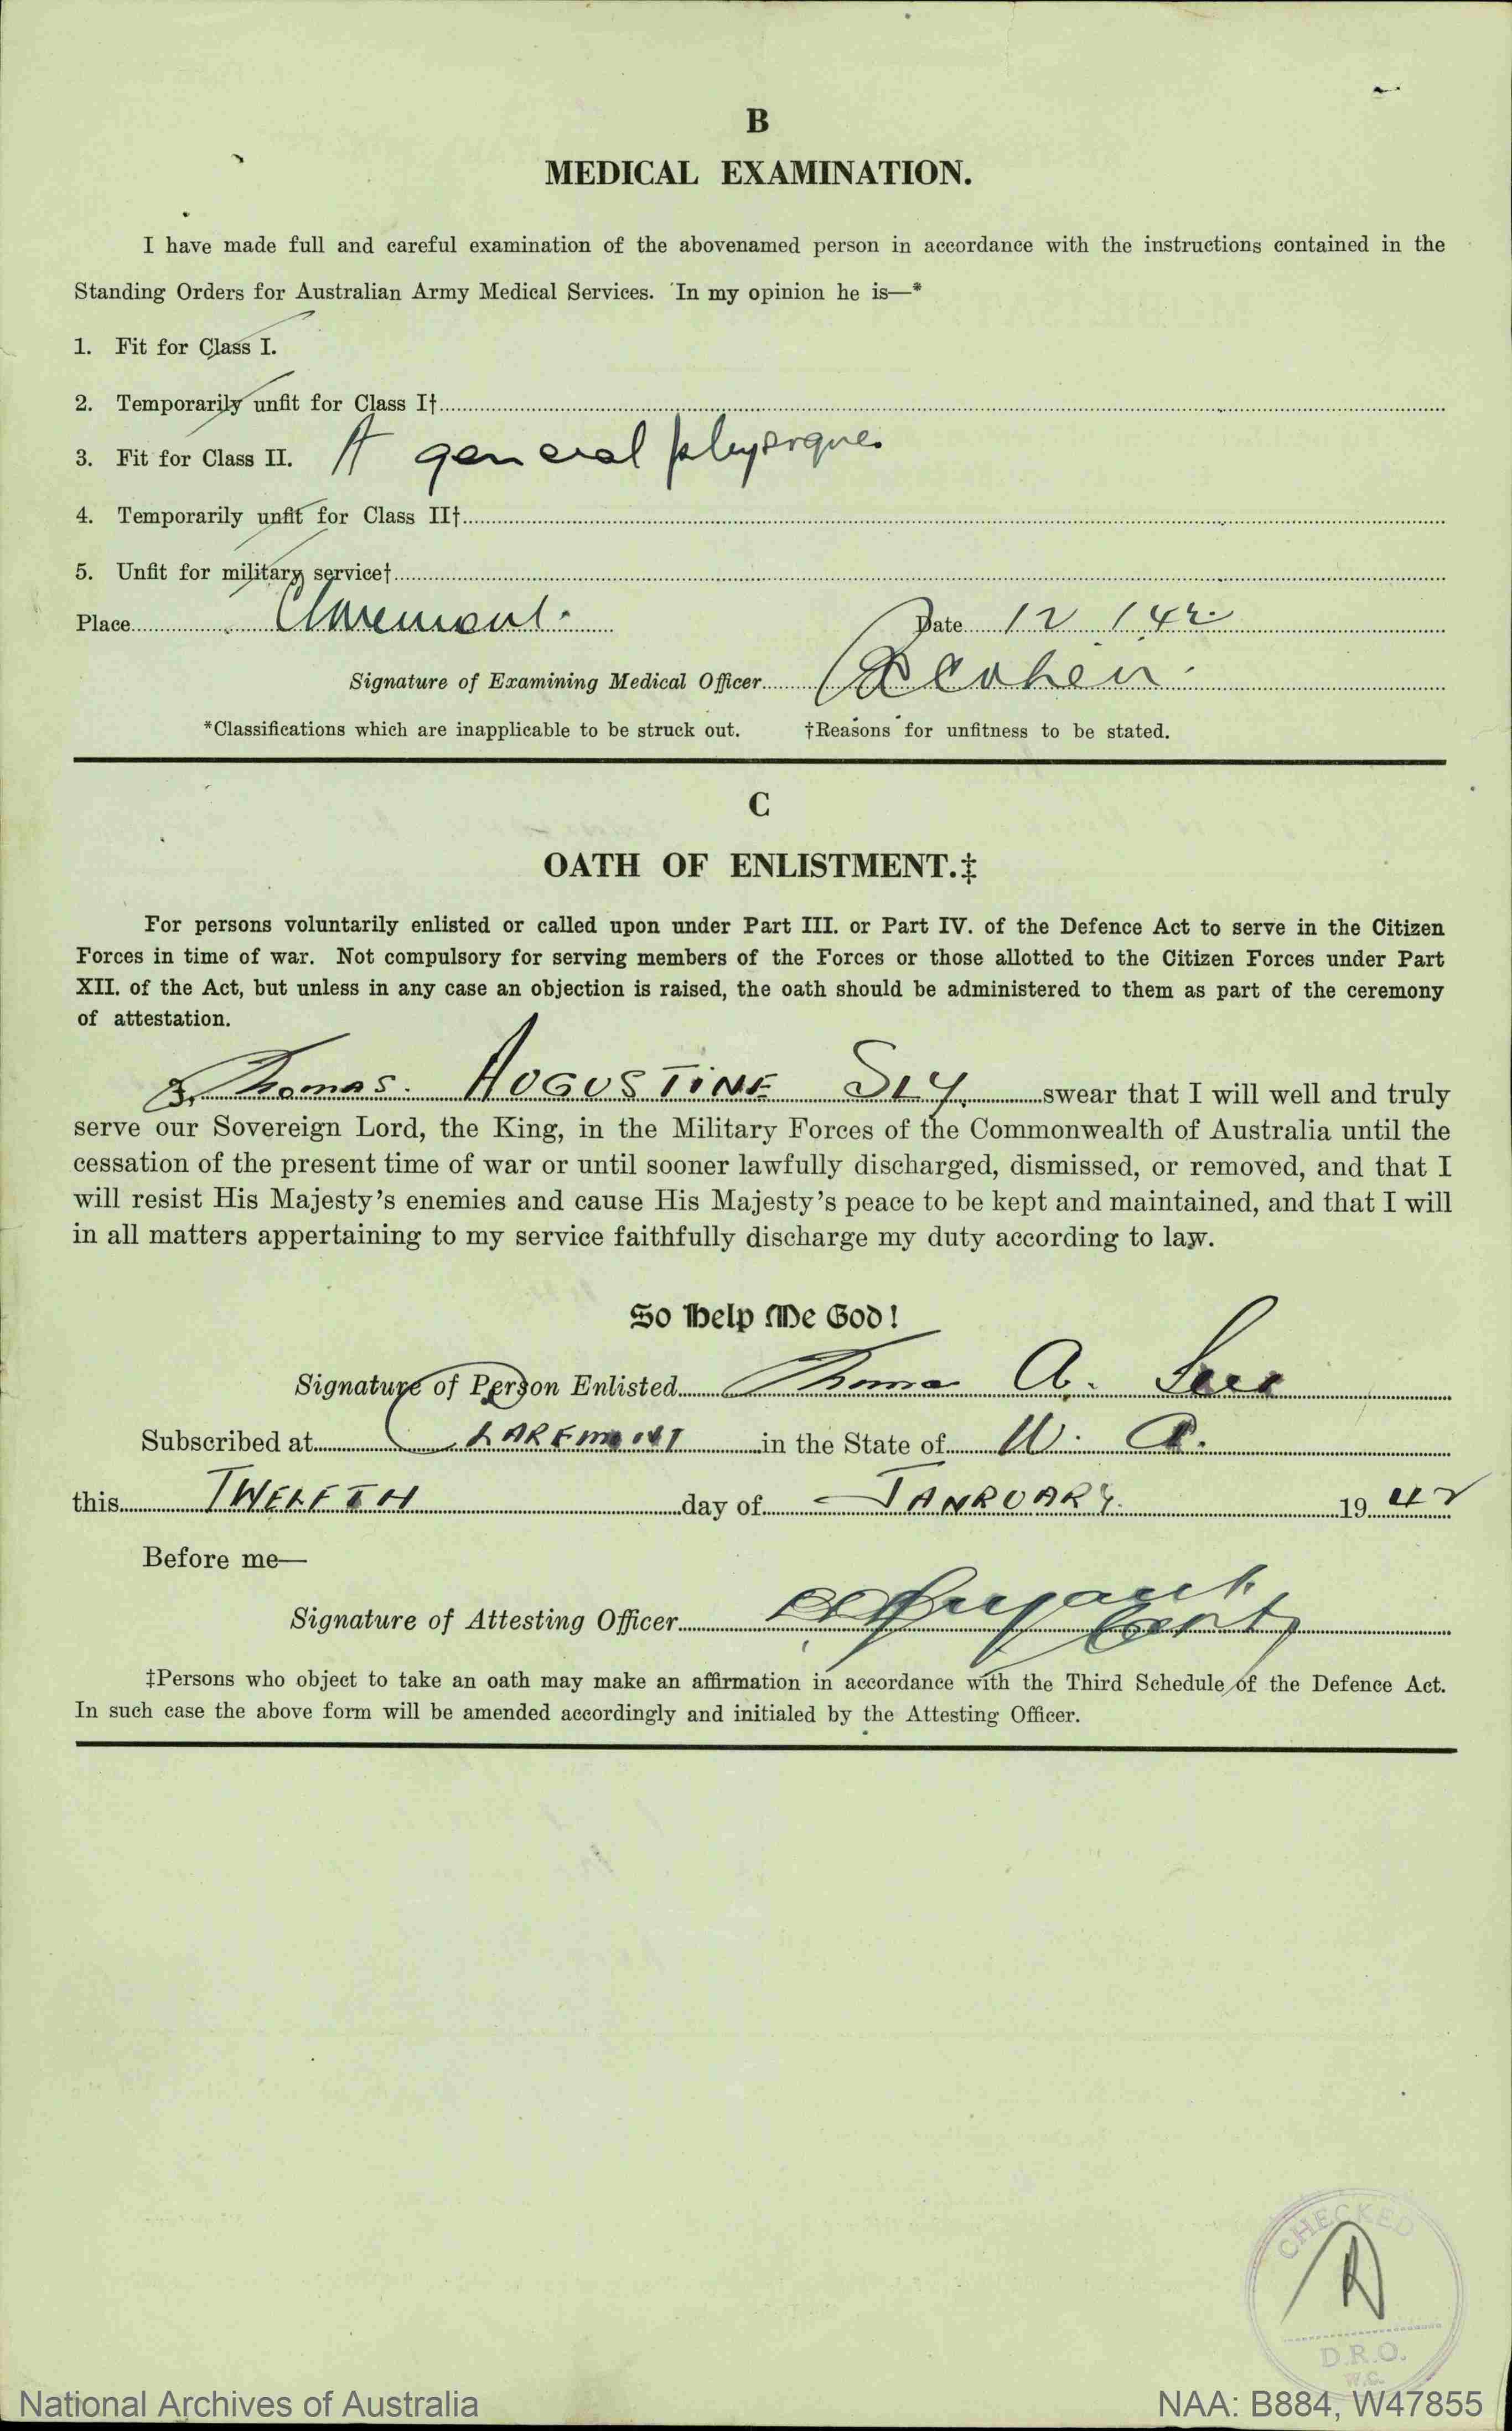 B
MEDICAL EXAMINATION.
I have made full and careful examination of the abovenamed person in accordance with the instructions contained in the
Standing Orders for Australian Army Medical Services. In my opinion he is—*
1. Fit for Class I.
2. Temporarily unfit for Class I†
3. Fit for Class II. A general physique.
4. Temporarily unfit for Class II†
5. Unfit for military service†
Place Claremont. Date 12 1 42
Signature of Examining Medical Officer Cohen
*Classifications which are inapplicable to be struck out. †Reasons for unfitness to be stated.
C
OATH OF ENLISTMENT.‡
For persons voluntarily enlisted or called upon under Part III. or Part IV. of the Defence Act to serve in the Citizen
Forces in time of war. Not compulsory for serving members of the Forces or those allotted to the Citizen Forces under Part
XII. of the Act, but unless in any case an objection is raised, the oath should be administered to them as part of the ceremony
of attestation.
I, Thomas. AUGUSTINE SLY. swear that I will well and truly
serve our Sovereign Lord, the King, in the Military Forces of the Commonwealth of Australia until the
cessation of the present time of war or until sooner lawfully discharged, dismissed, or removed, and that I
will resist His Majesty's enemies and cause His Majesty's peace to be kept and maintained, and that I will
in all matters appertaining to my service faithfully discharge my duty according to law.
So Help Me God!
Signature of Person Enlisted Thomas A.
Subscribed at CLAREMONT in the State of W. A.
this TWELFTH day of JANRUARY. 1942
Before me—
Signature of Attesting Officer
‡Persons who object to take an oath may make an affirmation in accordance with the Third Schedule of the Defence Act.
In such case the above form will be amended accordingly and initialed by the Attesting Officer.
CHECKED
D.R.O.
W.C.
National Archives of Australia NAA: B884, W47855